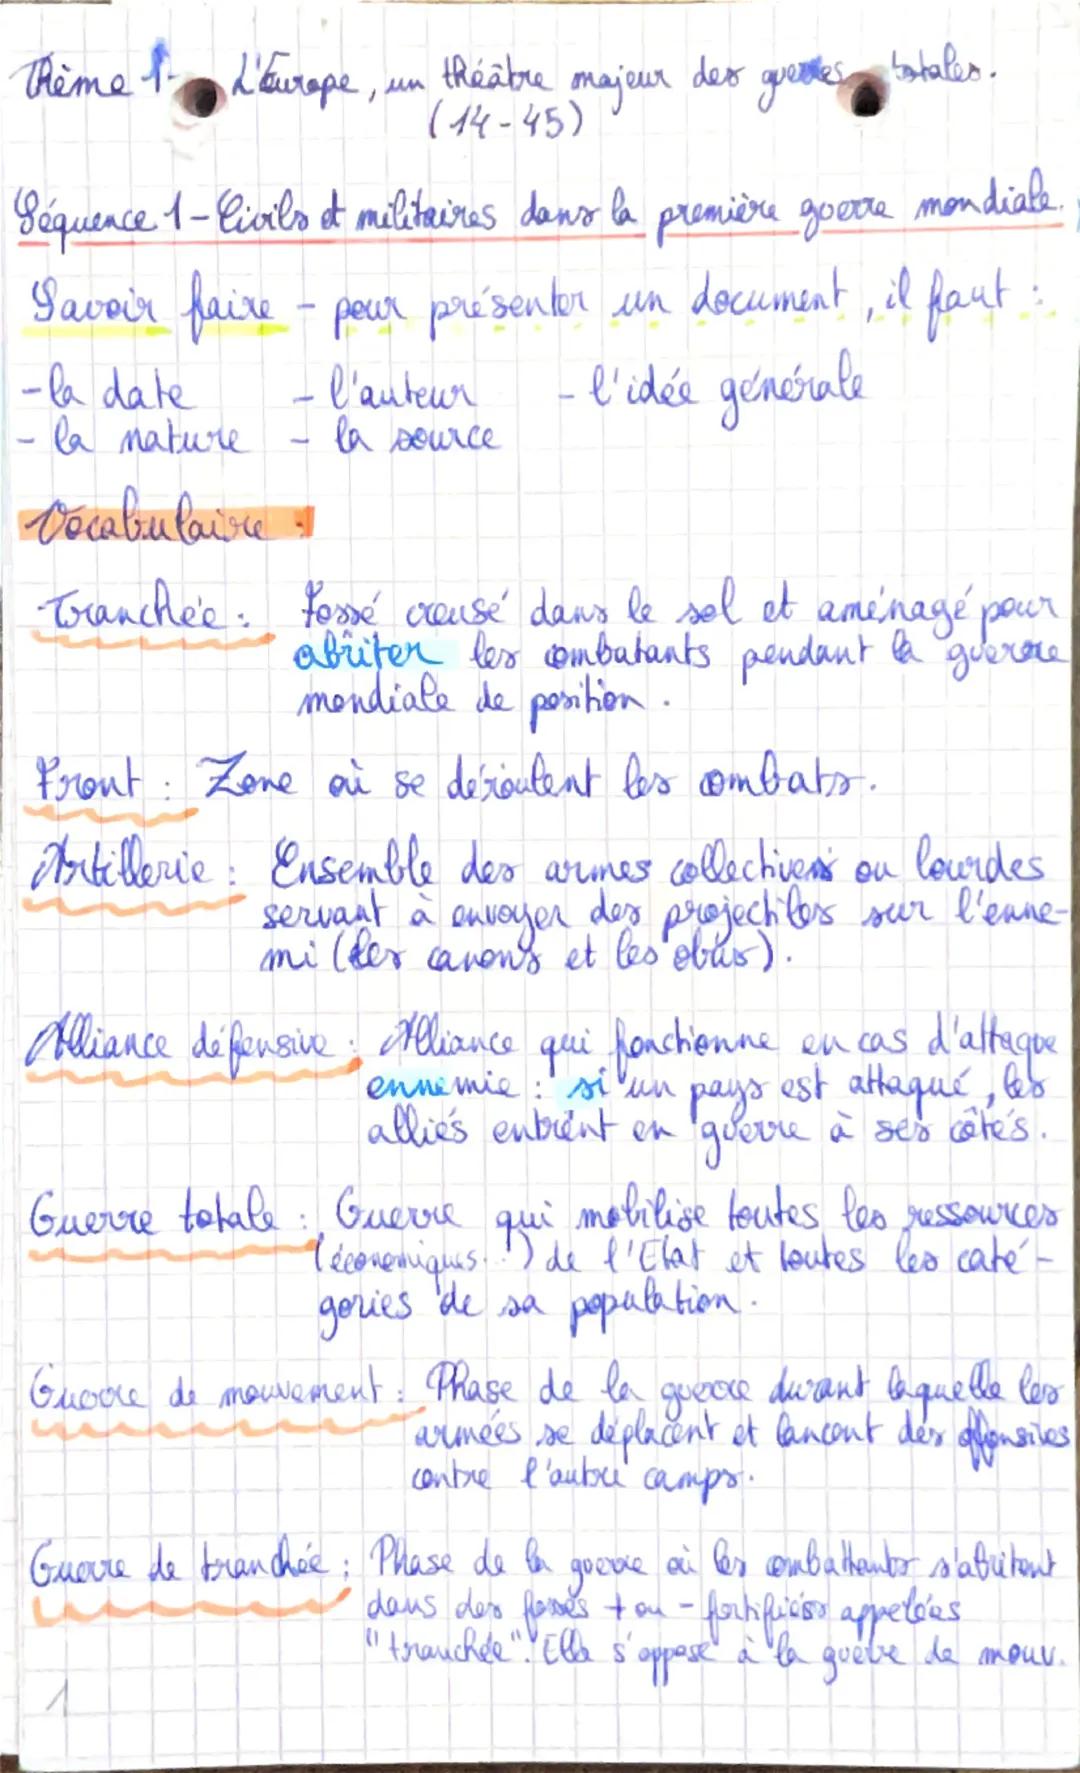 Thème 1- L'Europe, un théâtre majeur des guerres totales.
(14-45)
Séquence 1 - Civils et militaires dans la première guerre mondiale.
Savoir faire - pour présenter un document, il faut :
- la date - l'auteur - l'idée générale
- la nature - la source
Vocabulaire :
Tranchée : Fossé creusé dans le sol et aménagé pour
abriter les combatants pendant la guerre
mondiale de position.
Front : Zone où se déroulent les combats.
Artillerie : Ensemble des armes collectives ou lourdes
servant à envoyer des projectiles sur l'enne-
mi (les canons et les obus).
Alliance défensive : Alliance qui fonctionne en cas d'attaque
ennemie : si un pays est attaqué, les
alliés entrent en guerre à ses côtés.
Guerre totale : Guerre qui mobilise toutes les ressources
(économiques...) de l'Etat et toutes les caté-
gories de sa population.
Guerre de mouvement : Phase de la guerre durant laquelle les
armées se déplacent et lancent des offensives
contre l'autre camps.
Guerre de tranchée : Phase de la guerre où les combattants s'abritent
dans des fossés + ou - fortifiés appelées
"tranchée". Elle s'oppose à la guerre de mouv.
1